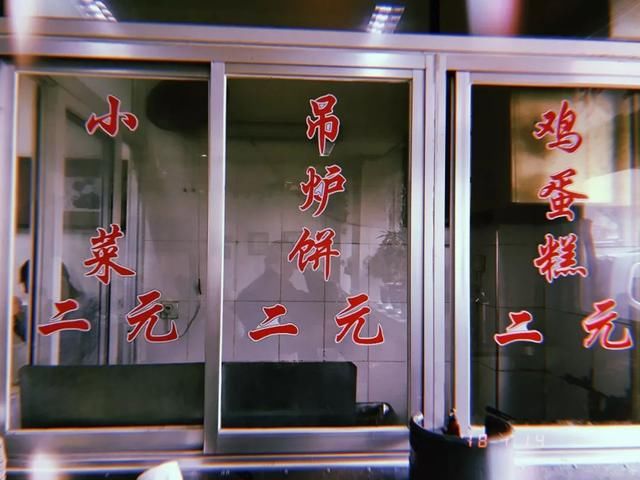 小菜
二元
吊炉饼
二元
鸡蛋糕
二元